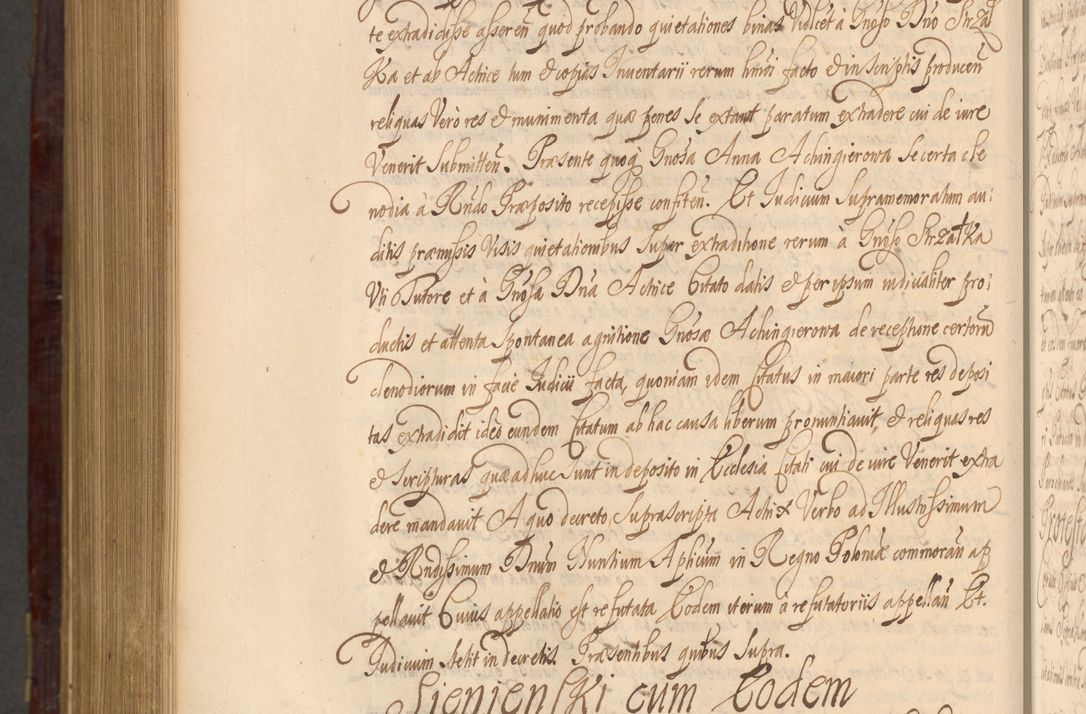 te extradidisse asseren̄ quod probando quietationes binas Vidlcet à Gnoso Dno Strzał
Ka et ab Actrice tum & copias Inventarii rerum hmoi facto & in scriptis producen̄
reliquas Vero res & munimenta quæ penes se extant paratum extradere cui de iure
Venerit submitten̄. Præsente quoq Gnosa Anna Achingierowa se certa cle
nodia à Rndo Præposito recepisse confiten̄. Et Iudicium supramemoratum au:
ditis præmissis Visis quietationibus super extraditione rerum à Gnoso Strzałka
Vti Tutore et à Gnosa Dna Actrice Citato datis & per ipsum iudicialiter pro:
ductis et attenta spontanea agnitione Gnosæ Achingierowa de receptione certorū
clenodiorum in facie Iudicii facta, quoniam idem Citatus in maiori parte res deposi
tas extradidit ideo eundem Citatum ab hac causa liberum pronuntiavit, & reliquas res
& scripturas quæ adhuc sunt in deposito in Ecclesia Citati cui de iure Venerit extra
dere mandavit A quo decreto suprascripta Actrix Verbo ad Illustrissimum
& Rndissimum Dnum Nuntium Aplicum in Regno Poloniæ commoran̄ ap
pellavit Cuius appellatio est refutata Eodem iterum à refutatoriis appellan̄ Et.
Iudicium stetit in decretis. Præsentibus quibus supra.
Sienienski cum Eodem